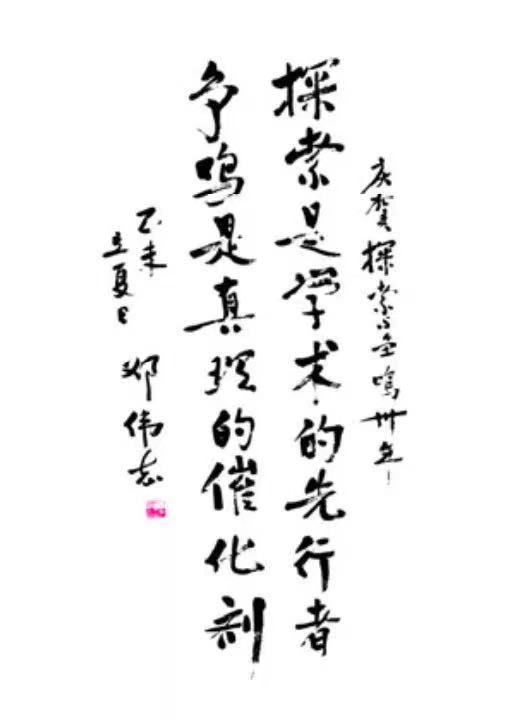 庆贺探索与争鸣卅年
探索是学术的先行者
争鸣是真理的催化剂
乙未
立夏日
邓伟志